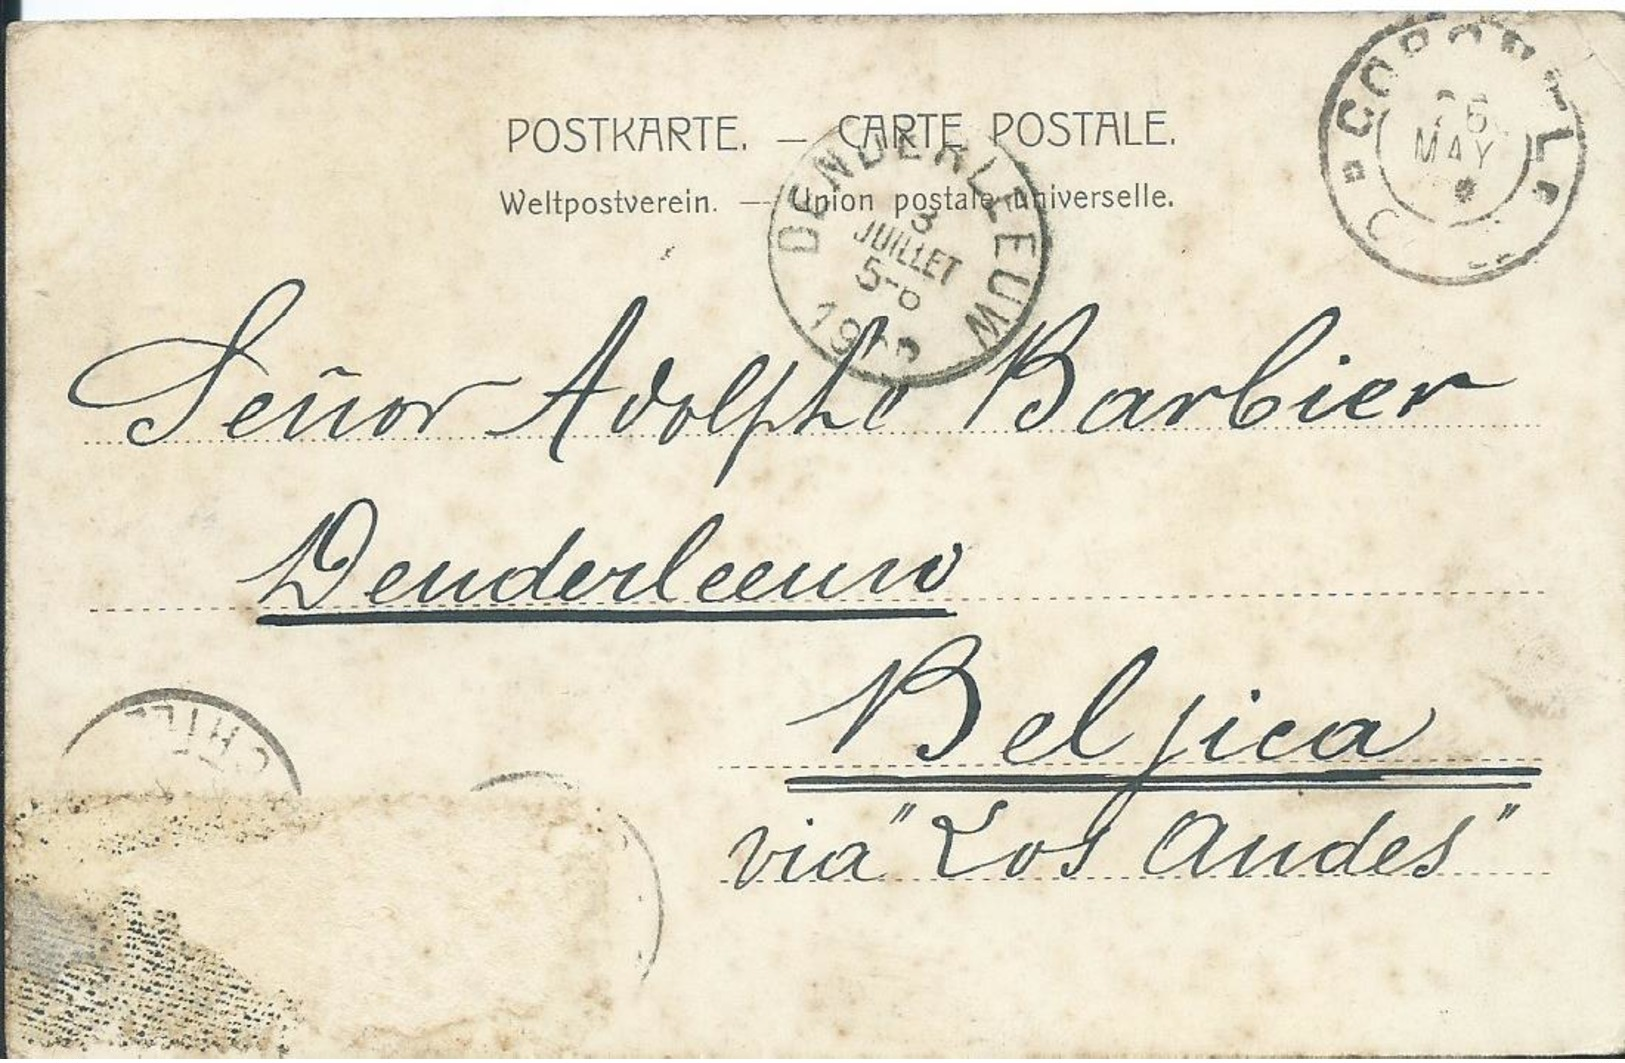 POSTKARTE. — CARTE POSTALE.
Weltpostverein. — Union postale universelle.
DENDERLEEUW
3
JUILLET
5-6
MAY
Señor Adolphe Barbier
Denderleeuw
Beljica
via "Los Andes"